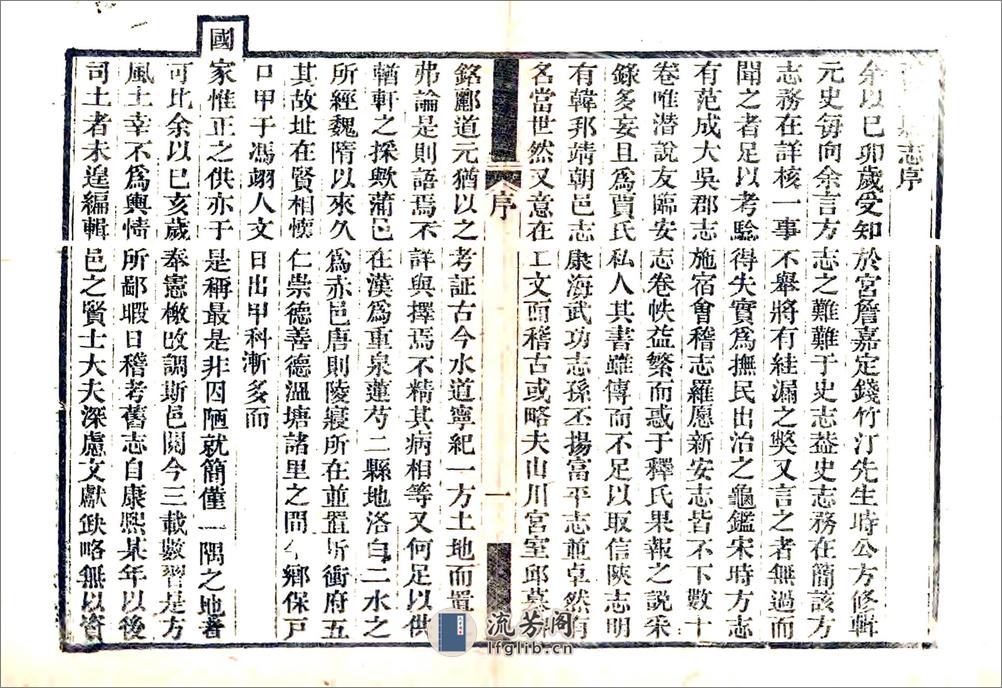 志序
余以已卯歲受知於宮詹嘉定錢竹汀先生時公方修輯
元史每向余言方志之難難于史志蓋史志務在簡該方
志務在詳核一事不舉將有絓漏之獘又言之者無過而
聞之者足以考驗得失實爲撫民出治之龜鑑宋時方志
有范成大吳郡志施宿會稽志羅愿新安志皆不下數十
卷唯潛說友臨安志卷帙益繁而惑于釋氏果報之說采
錄多妄且爲賈氏私人其書雖傳而不足以取信陝志明
有韓邦靖朝邑志康海武功志孫丕揚富平志並卓然有
名當世然又意在工文而稽古或略夫山川宮室邱墓
序
一
銘酈道元猶以之考証古今水道寧紀一方土地而置
弗論是則語焉不詳與擇焉不精其病相等又何足以供
輶軒之採歟蒲邑在漢爲重泉蓮芍二縣地洛白二水之
所經魏隋以來久爲赤邑唐則陵寢所在並置折衝府五
其故址在賢相懷仁崇德善德溫塘諸里之間今鄉保戸
口甲于馮翊人文日出甲科漸多而
國家惟正之供亦于是稱最是非因陋就簡僅一隅之地者
可比余以已亥歲奉憲檄改調斯邑閱今三載數習是方
風土幸不爲輿情所鄙暇日稽考舊志自康熙某年以後
司土者未遑編輯邑之賢士大夫深慮文獻缺略無以資
流芳阁
lfglib.cn